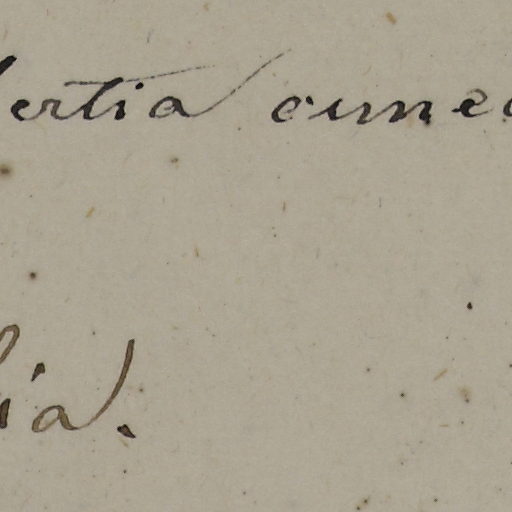 bertia cunea
ia.